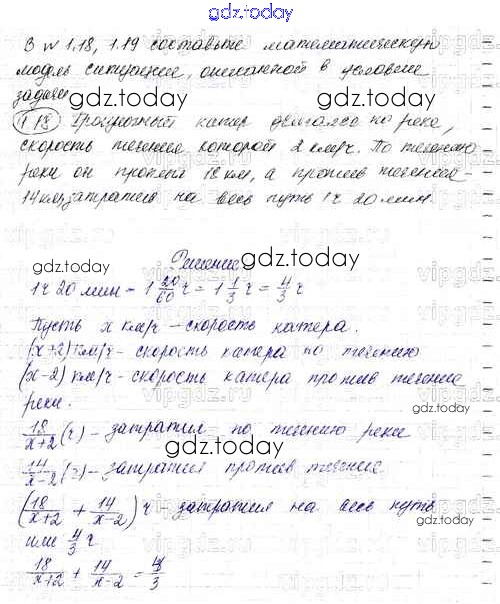 gdz.today
В № 1.18, 1.19 составьте математическую
модель ситуации, описанной в условии
задачи
gdz.today
gdz.today
1.18 Прогулочный катер двигался по реке,
скорость течения которой 2 км/ч. По течению
реки он проплыл 18 км, а против течения -
14 км, затратив на весь путь 1ч 20 мин.
gdz.today
gdz.today
Решение
gdz.today
1ч 20 мин = 1 20/60 ч = 1 1/3 ч = 4/3 ч
Пусть x км/ч - скорость катера.
(x+2) км/ч - скорость катера по течению
(x-2) км/ч - скорость катера против течения
реки.
gdz.today
18/(x+2) (ч) - затратил по течению реки
gdz.today
14/(x-2) (ч) - затратил против течения
(18/(x+2) + 14/(x-2)) ч - затратил на весь путь
или 4/3 ч
gdz.today
18/(x+2) + 14/(x-2) = 4/3
gdz.today